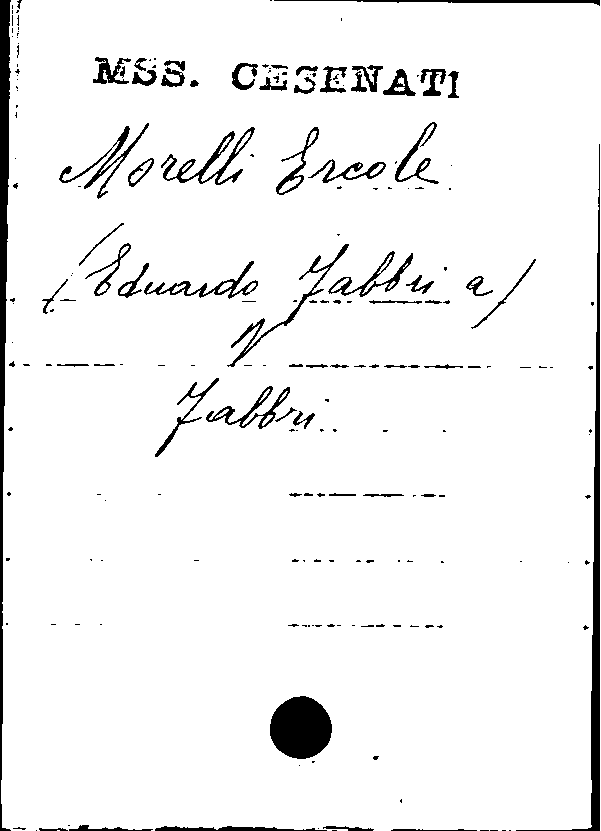 MSS. CESENATI
Morelli Ercole
(Eduardo Fabbri a)
V
Fabbri